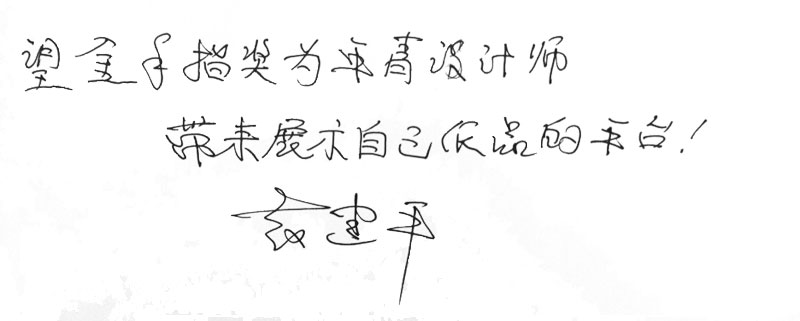 望金手指奖为年青设计师
带来展示自己作品的平台!
建平